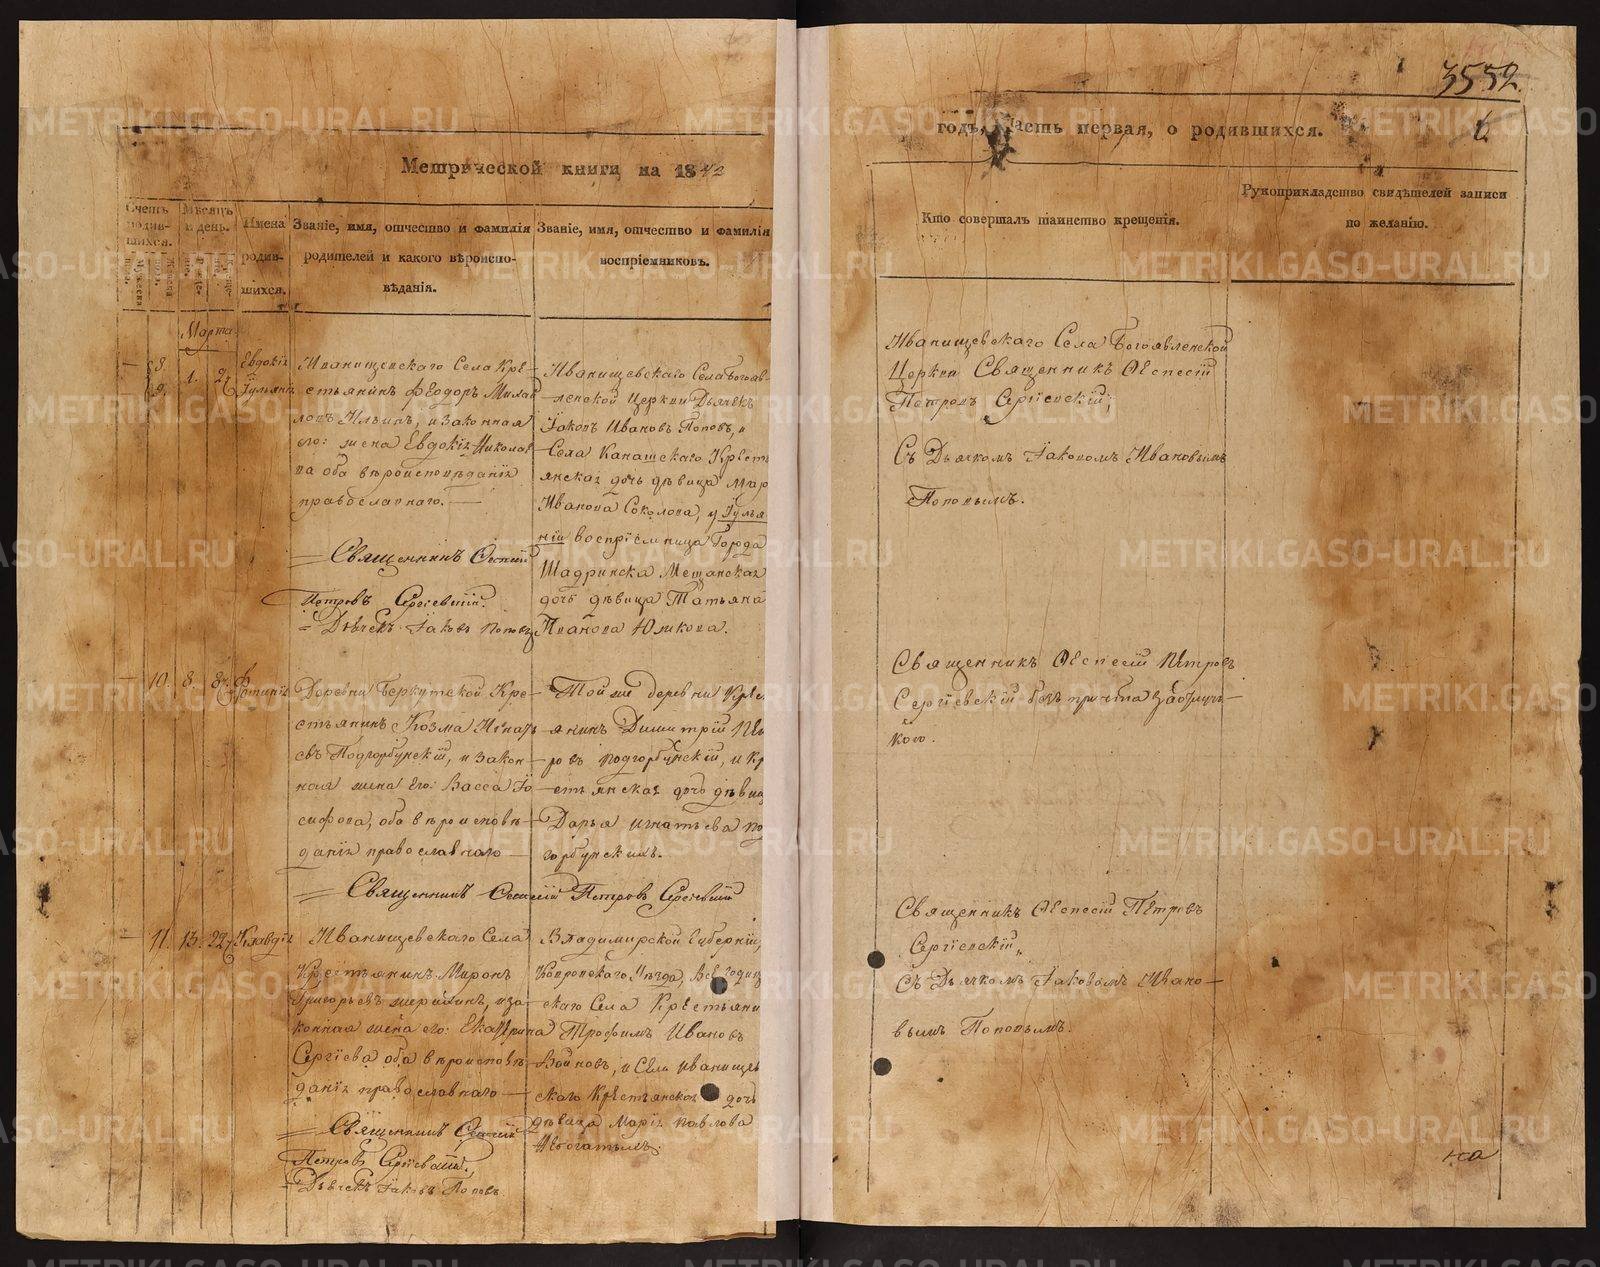 Метрической книги на 1842
Счетъ родив-шихся.
Мѣсяцъ и день.
Имена родив-шихся.
Званіе, имя, отчество и фамилія
родителей и какого вѣроиспо-
вѣданія.
Званіе, имя, отчество и фамилія
воспріемниковъ.
Марта
8. 9. 1. 2.
Евдокіѧ
Іульяніѧ
Иванищевскаго Села Кре-
стьянинъ Ѳеодоръ
Ильинъ, и законная
его: жена Евдокіѧ Никола
ва оба вѣроисповѣданіѧ
православнаго.
Священникъ
Петровъ Сергіевскій.
Дьячекъ Іаковъ Поповъ
Иванищевскаго Села Богояв-
ленской Церкви Дьячекъ
Іаковъ Ивановъ Поповъ, и
Села Канашскаго Крест
янскаѧ дочь дѣвица Мар
Иванова Соколова, у Іулья
ніи воспріемница Города
Шадринска Мещанскаѧ
дочь дѣвица Татьяна
Иванова Юликова.
10. 8. 8.
Фотиніѧ
Деревни Беркутской Кре-
стьянинъ Козма Игнать
евъ Подгорбунскій, и закон-
ная жена Его: Васса Іо
сифова, оба вѣроисповѣ-
даніѧ православнаго
Священникъ Петровъ Сергіевскій
Той же деревни Крес
янинъ Димитрій Пет
ровъ Подгорбунскій, и Кр
естьянскаѧ дочь дѣвиц
Дарья Игнатьева По
горбунскихъ.
11. 13. 22.
Клавдіѧ
Иванищевскаго Села
Крестьянинъ Миронъ
Григорьевъ и за-
конная жена его: Екатерина
Сергіева оба вѣроисповѣ-
даніѧ православнаго
Священникъ
Петровъ Сергіевскій.
Дьячекъ Іаковъ Поповъ
Владимирской Губерніи,
Ковровскаго Уѣзда,
скаго Села Крестьяни
Трофимъ Ивановъ
и Села Иванищев
скаго Крестьянскаѧ дочь
дѣвица Маріѧ Павлова
3552.
годъ, Часть первая, о родившихся.
6.
Кто совершалъ таинство крещенія.
Рукоприкладство свидѣтелей записи
по желанію.
Иванищевскаго Села Богоявленской
Церкви Священникъ
Петровъ Сергіевскій,
Съ Дьячкомъ Іаковомъ Ивановымъ
Поповымъ.
Священникъ Петровъ
Сергіевскій безъ причта
Священникъ Петровъ
Сергіевскій,
Съ Дьячкомъ Іаковомъ Ивано-
вымъ Поповымъ.
на
METRIKI.GASO-URAL.RU